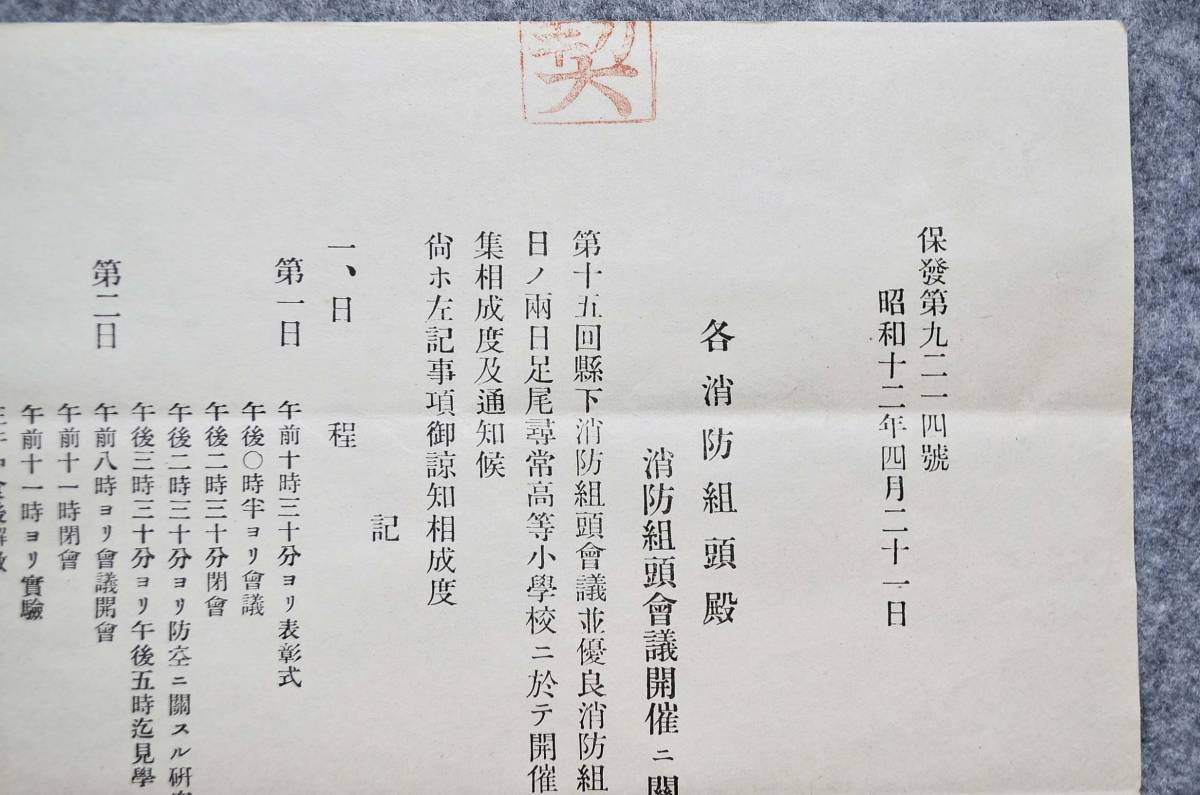 契
保發第九二一四號
昭和十二年四月二十一日
各消防組頭殿
消防組頭會議開催ニ關
第十五回縣下消防組頭會議並優良消防組
日ノ兩日足尾尋常高等小學校ニ於テ開催
集相成度及通知候
尙ホ左記事項御諒知相成度
記
一、日程
第一日 午前十時三十分ヨリ表彰式
午後〇時半ヨリ會議
午後二時三十分閉會
午後二時三十分ヨリ防空ニ關スル研
午後三時三十分ヨリ午後五時迄見學
第二日 午前八時ヨリ會議開會
午前十一時閉會
午前十一時ヨリ實驗